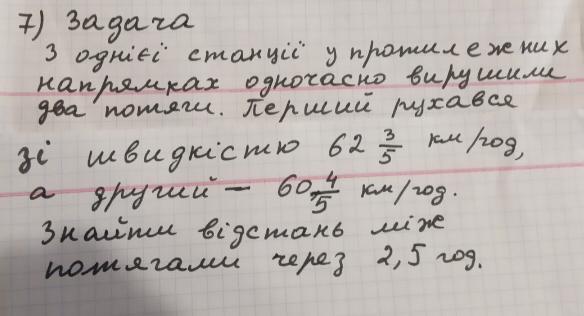 7) Задача
З однієї станції у протилежних
напрямках одночасно вирушили
два потяги. Перший рухався
зі швидкістю 62 3/5 км/год,
а другий – 60 4/5 км/год.
Знайти відстань між
потягами через 2,5 год.